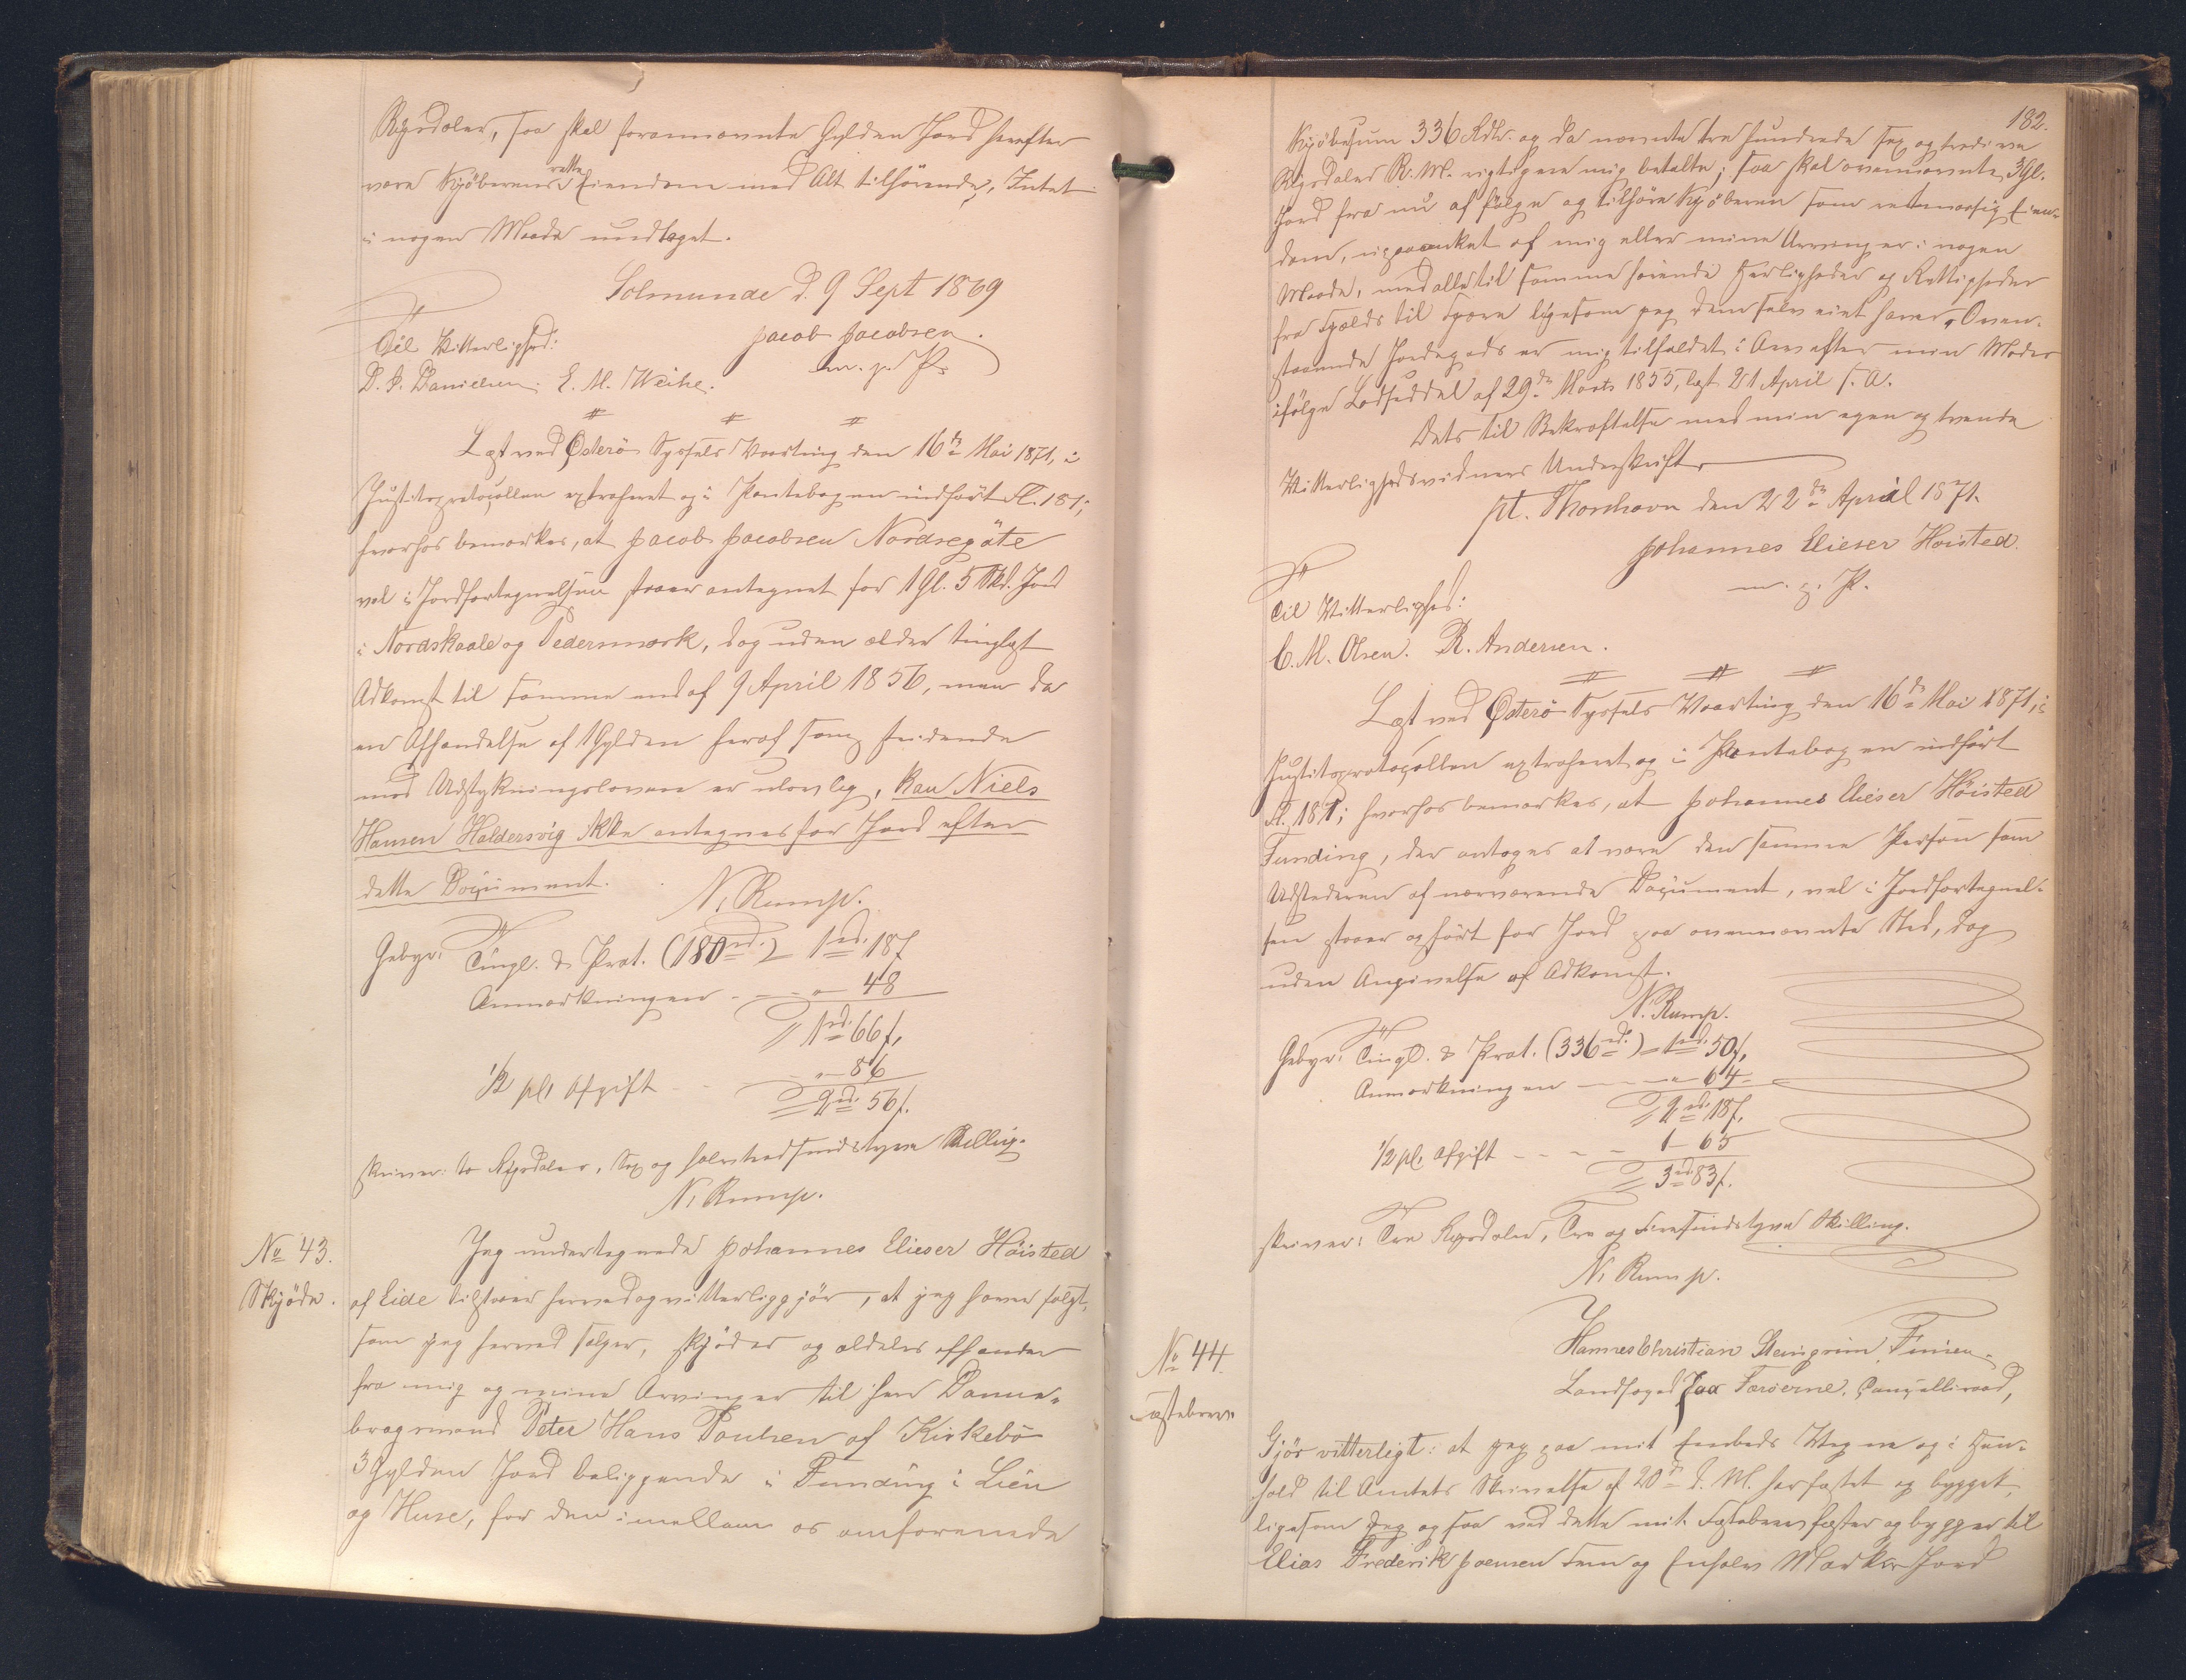 Rigsdaler, saa skal forannævnte Gylden Jord herefter
være Kjöberens rette Eiendom med Alt tilhörende, Intet
i nogen Maade undtaget.
Solmunde d. 9 Sept 1869
Jacob Jacobsen.
m. p. P.
Til Vitterlighed:
D. J. Danielsen. E. M. Weihe.
Læst ved Österö Syssels Vaarting den 16de Mai 1871, i
Justitsprotocollen extraheret og i Pantebogen indfört Fl. 181;
hvorhos bemærkes, at Jacob Jacobsen Nordregöte
vel i Jordfortegnelsen staaer antegnet for 1 Gl. 5 Skd. Jord
i Nordskaale og Pedersmærk, dog uden ælder tinglæst
Adkomst til samme end af 9 April 1856, men da
en Afhændelse af 1 Gylden heraf som stridende
mod Udstykningslovene er ulovlig, kan Niels
Hansen Haldersvig ikke antegnes for Jord efter
dette Document.
N. Rump.
Gebyr: Tingl. & Prot. (180 rd.) = 1 rd. 18 ſ
Anmærkningen - - " - 48
1 rd. 66 ſ.
1/2 pCt Afgift - - " - 86
2 rd. 56 ſ.
skriver: to Rigsdaler, Sex og halvtredsindstyve Skilling.
N. Rump.
No 43.
Skjöde.
Jeg undertegnede Johannes Elieser Höisted
af Eide tilstaaer herved og vitterliggjör, at jeg haver solgt,
som jeg herved sælger, skjöder og aldeles afhænder
fra mig og mine Arvinger til Herr Danne-
brogsmand Peter Hans Poulsen af Kirkebö
3 Gylden Jord beliggende i Funding i Lien
og Huse, for den imellem os omforenede
182.
Kjöbesum 336 Rdlr. og da nævnte tre hundrede sex og tredive
Rigsdaler R. M. rigtig ere mig betalte; saa skal ovennævnte 3 Gl.
Jord fra nu af fölge og tilhöre Kjöberen som retmæssig Eien-
dom, upaaanket af mig eller mine Arvinger i nogen
Maade, med alle til samme hörende Herligheder og Rettigheder
fra Fjelds til Fjære ligesom jeg dem selv eiet haver. Oven-
staaende Jordegods er mig tilfaldet i Arv efter min Moder
ifölge Lodseddel af 29de Marts 1855, læst 21 April s. A.
Dets til Bekræftelse med min egen og tvende
Vitterlighedsvidners Underskrift.
pt. Thorshavn den 22de April 1871.
Johannes Elieser Höisted.
m. p. P.
Til Vitterlighed:
C. M. Olsen. R. Andersen.
Læst ved Österö Syssels Vaarting den 16de Mai 1871, i
Justitsprotocollen extraheret og i Pantebogen indfört
Fl. 181; hvorhos bemærkes, at Johannes Elieser Höisted
Funding, der antages at være den samme Person som
Udstederen af nærværende Document, vel i Jordfortegnel-
sen staaer opfört for Jord paa ovennævnte Sted, dog
uden Angivelse af Adkomst.
N. Rump.
Gebyr: Tingl. & Prot. (336 rd.) = 1 rd. 50 ſ.
Anmærkningen - - " - 64 -
2 rd. 18 ſ.
1/2 pCt Afgift - - - - 1 - 65
3 rd. 83 ſ.
skriver: Tre Rigsdaler, Tre og Firesindstyve Skilling.
N. Rump.
No 44.
Fæstebrev
Hannes Christian Steingrim Finsen
Landfoged paa Færöerne, Cancelliraad,
Gjör vitterligt: at jeg paa mit Embeds Vegne og i Hen-
hold til Amtets Skrivelse af 20de d. M. har fæstet og bygget,
ligesom jeg ogsaa ved dette mit Fæstebrev fæster og bygger til
Elias Frederik Joensen Fem og Enhalv Marker Jord